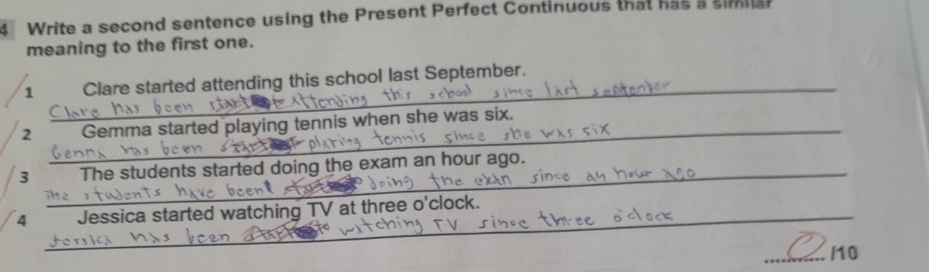 4 Write a second sentence using the Present Perfect Continuous that has a similar
meaning to the first one.
1 Clare started attending this school last September.
Clare has been attending this school since last september
2 Gemma started playing tennis when she was six.
Gemma has been playing tennis since she was six
3 The students started doing the exam an hour ago.
The students have been doing the exan since an hour ago
4 Jessica started watching TV at three o'clock.
Jessica has been watching TV since three o'clock
0/10